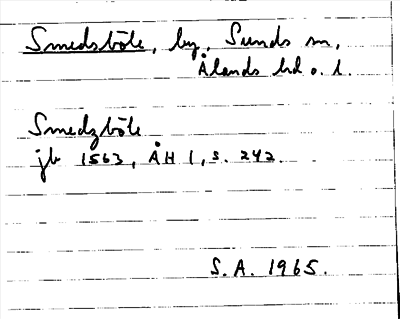 Smedsböle, by, Sunds sn,
Ålands hd o. l.
Smedzböle
jb 1563, ÅH 1, s. 242.
S.A. 1965.